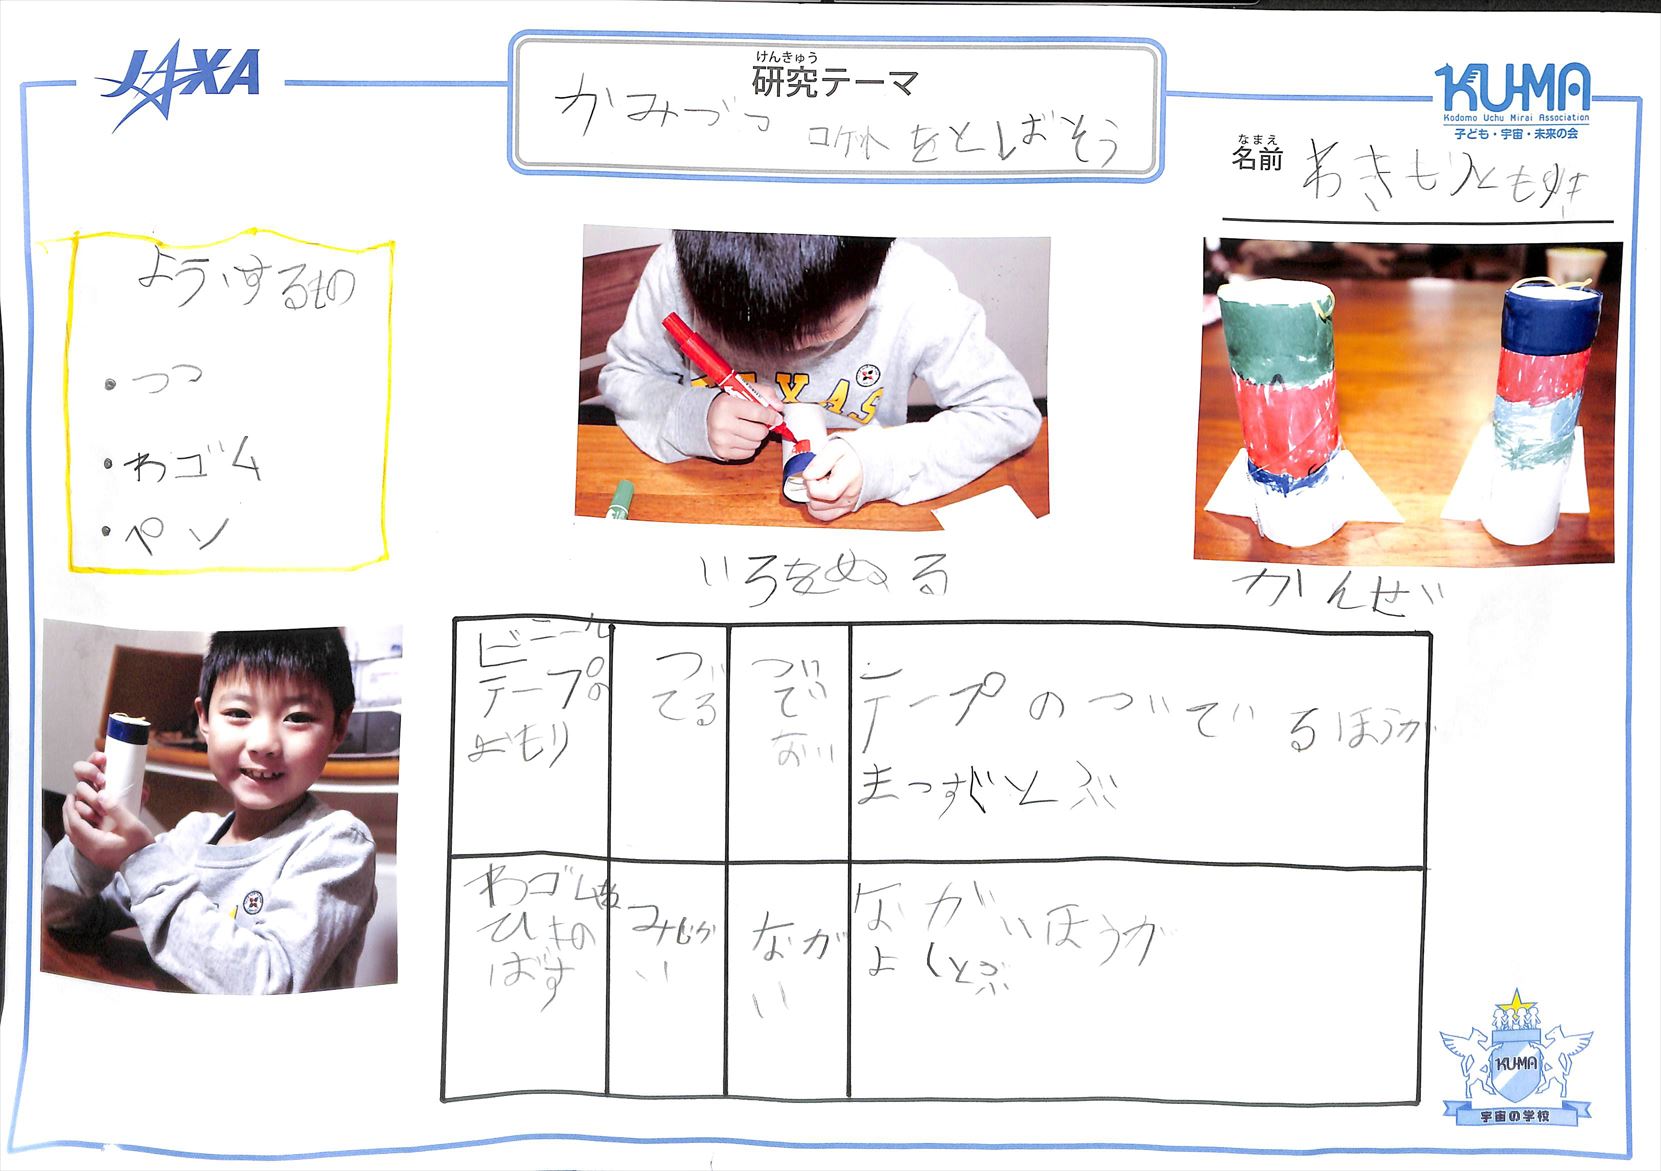 JAXA
けんきゅう
研究テーマ
かみづつ ロケット をとばそう
KU-MA
Kodomo Uchu Mirai Association
子ども・宇宙・未来の会
なまえ
名前
わきもりともゆき
よういするもの
・つつ
・わゴム
・ペン
TEXAS
いろをぬる
かんせい
ビニール
テープの
おもり
つい
てる
ついて
ない
テープのついているほうが
まっすぐとぶ
わゴムを
ひきの
ばす
みじか
い
なが
い
ながいほうが
よくとぶ
KU-MA
宇宙の学校